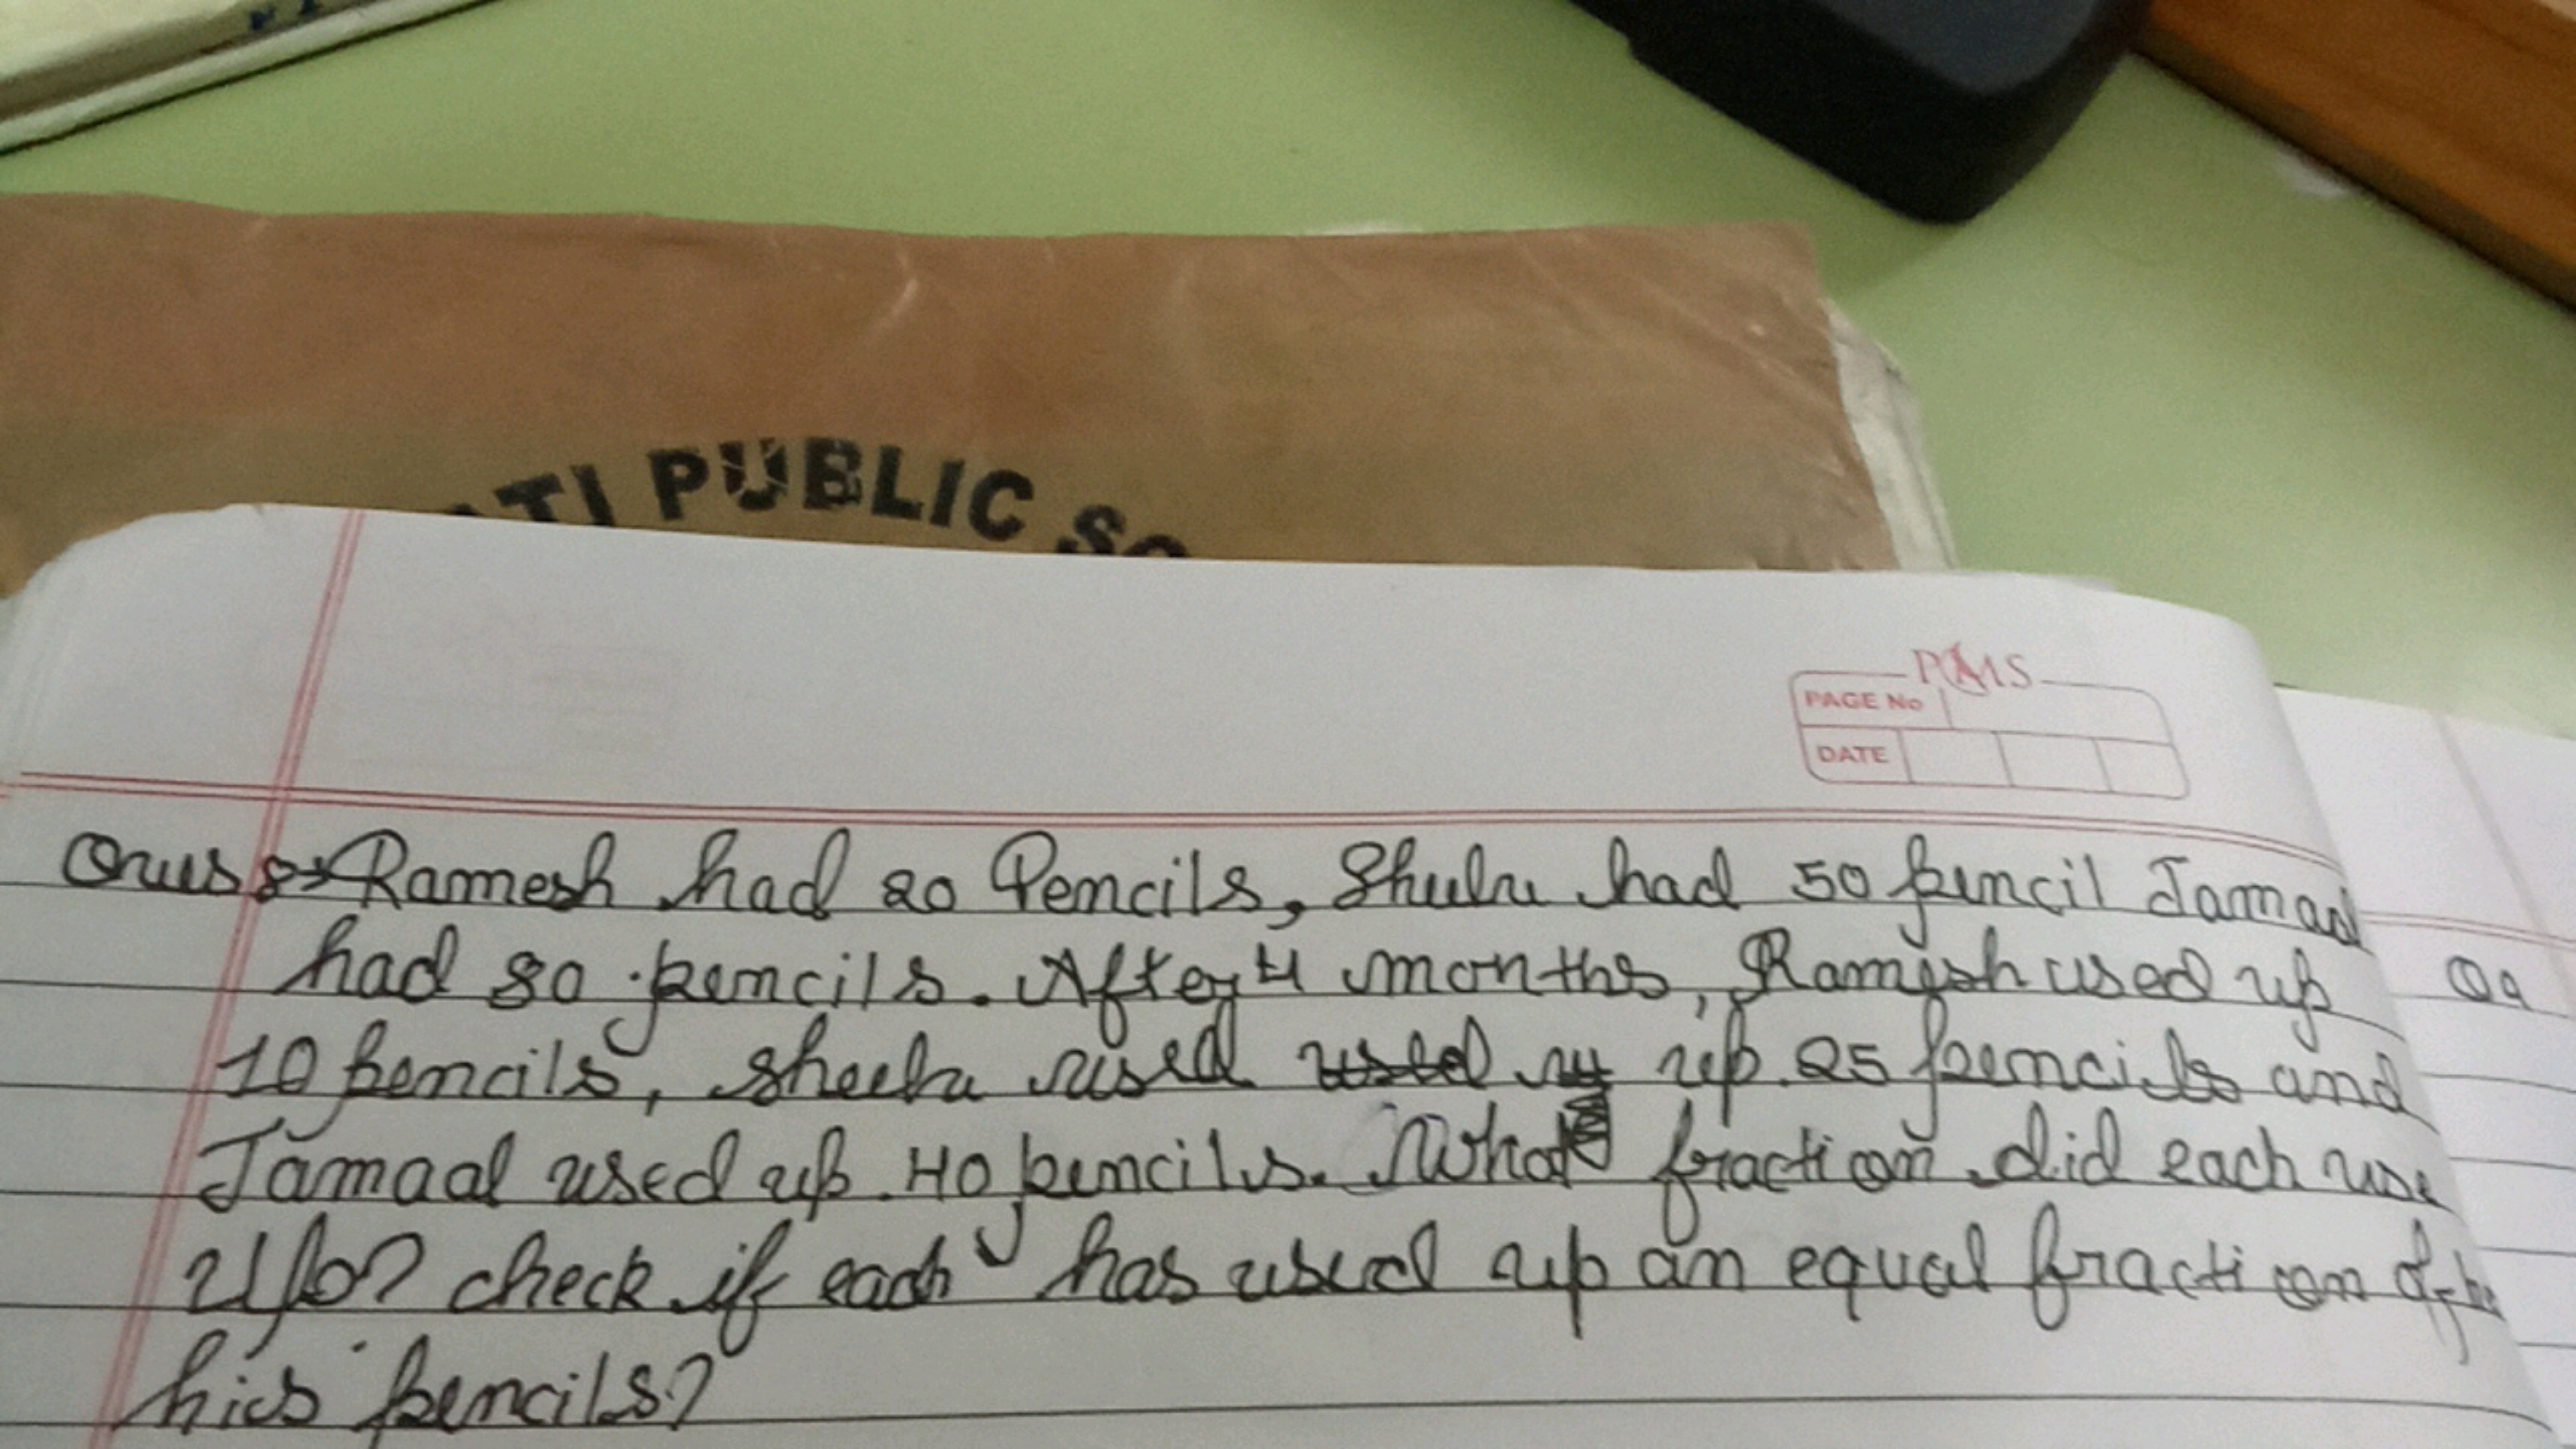 ATI PUBLIC SC
PAMS
PAGE No
DATE
Ques 8 → Ramesh had 20 Pencils, Sheelu had 50 pencil Jamaal
had 80 pencils. After 4 months, Ramesh used up
10 pencils, sheelu used up 25 pencils and
Jamaal used up 40 pencils. What fraction did each use
up? check if each has used up an equal fraction of
his pencils?